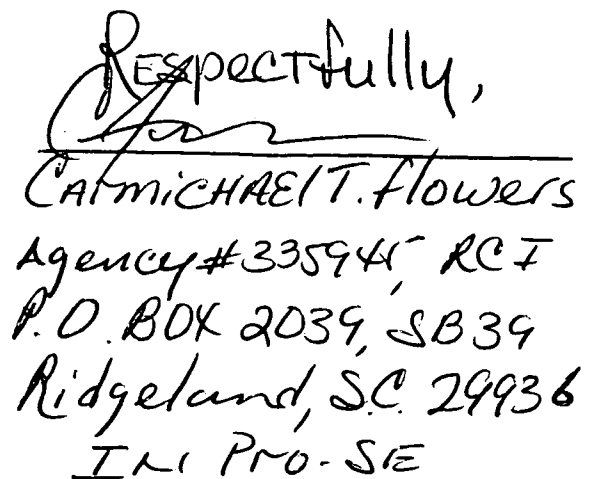 Respectfully,
Carmichael T. flowers
Agency #335945, RCI
P.O. BOX 2039, SB39
Ridgeland, S.C. 29936
IN Pro-SE